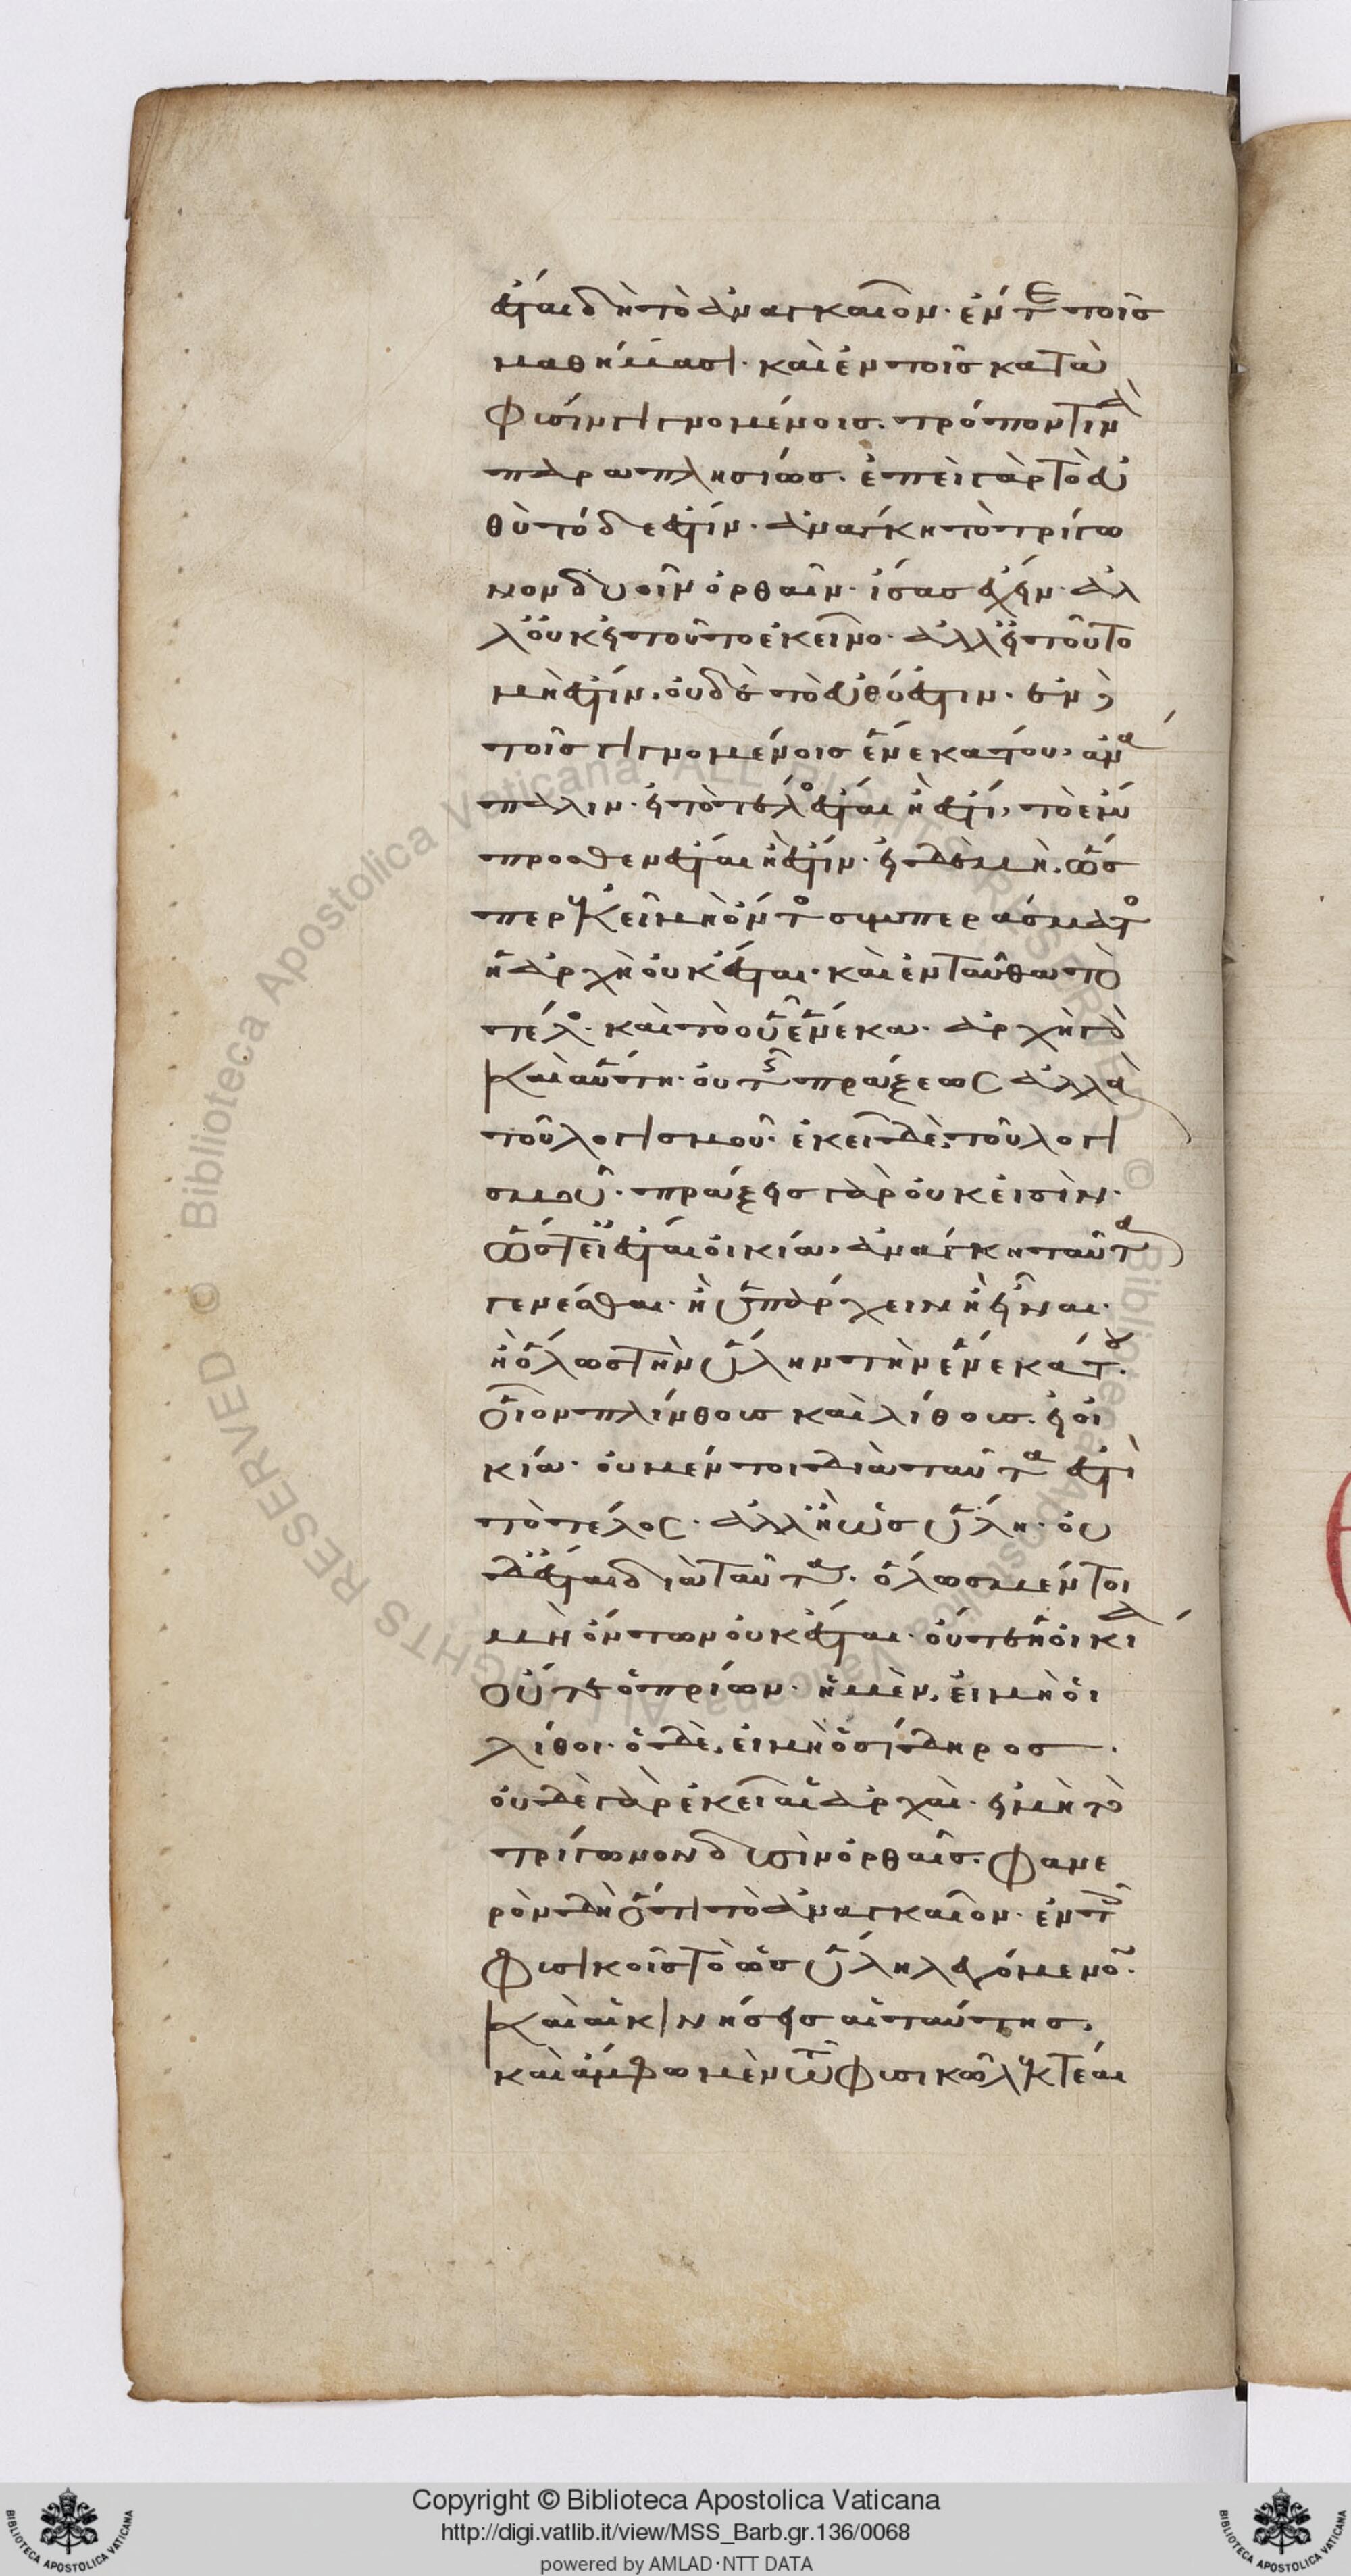 ἔσται δὴ τὸ ἀναγκαῖον· ἔν τε τοῖς
μαθήμασι· καὶ ἐν τοῖς κατὰ
φύσιν γιγνομένοις. τρόπον τινὰ
παραπλησίως. ἐπεὶ γὰρ τὸ εὐ
θὺ τόδε ἐστίν· ἀνάγκη τὸ τρίγω
νον δυοῖν ὀρθαῖν· ἴσας ἔχειν· ἀλ
λ' οὐκ εἰ τοῦτο ἐκεῖνο· ἀλλ' εἰ τοῦτο
μὴ ἔστιν. οὐδὲ τὸ εὐθύ ἐστιν. ἐν δὲ
τοῖς γιγνομένοις ἕνεκά του, ἀνά
παλιν. εἰ τὸ τέλος ἔσται ἢ ἔστι, τὸ ἔμ
προσθεν ἔσται ἢ ἔστιν. εἰ δὲ μή. ὥς
περ ἐκεῖ μὴ ὄντος συμπεράσματος
ἡ ἀρχὴ οὐκ ἔσται· καὶ ἐνταῦθα τὸ
τέλος. καὶ τὸ οὗ ἕνεκα. ἀρχὴ γὰρ
καὶ αὕτη· οὐ τῆς πράξεως ἀλλὰ
τοῦ λογισμοῦ. ἐκεῖ δὲ, τοῦ λογι
σμοῦ. πράξεις γὰρ οὐκ εἰσίν.
ὥστ' εἰ ἔσται οἰκία. ἀνάγκη ταῦτα
γενέσθαι. ἢ ὑπάρχειν ἢ εἶναι.
ἢ ὅλως τὴν ὕλην τὴν ἕνεκά του.
οἷον πλίνθους καὶ λίθους. εἰ οἰ
κία. οὐ μέντοι διὰ ταῦτα ἐστὶ
τὸ τέλος. ἀλλ' ἢ ὡς ὕλη. οὐ
δ' ἔσται διὰ ταῦτα. ὅλως μέντοι
μὴ ὄντων οὐκ ἔσται. οὔτε ἡ οἰκία
οὔτε ὁ πρίων. ἡ μὲν, εἰ μὴ οἱ
λίθοι. ὁ δὲ, εἰ μὴ ὁ σίδηρος.
οὐδὲ γὰρ ἐκεῖ αἱ ἀρχαί. εἰ μὴ τὸ
τρίγωνον δυσὶν ὀρθαῖς. φανε
ρὸν δὴ ὅτι τὸ ἀναγκαῖον. ἐν τοῖς
φυσικοῖς τὸ ὡς ὕλη λεγόμενον.
καὶ αἱ κινήσεις αἱ ταύτης.
καὶ ἄμφω μὲν τῷ φυσικῷ λεκτέαι
Copyright © Biblioteca Apostolica Vaticana
http://digi.vatlib.it/view/MSS_Barb.gr.136/0068
powered by AMLAD·NTT DATA